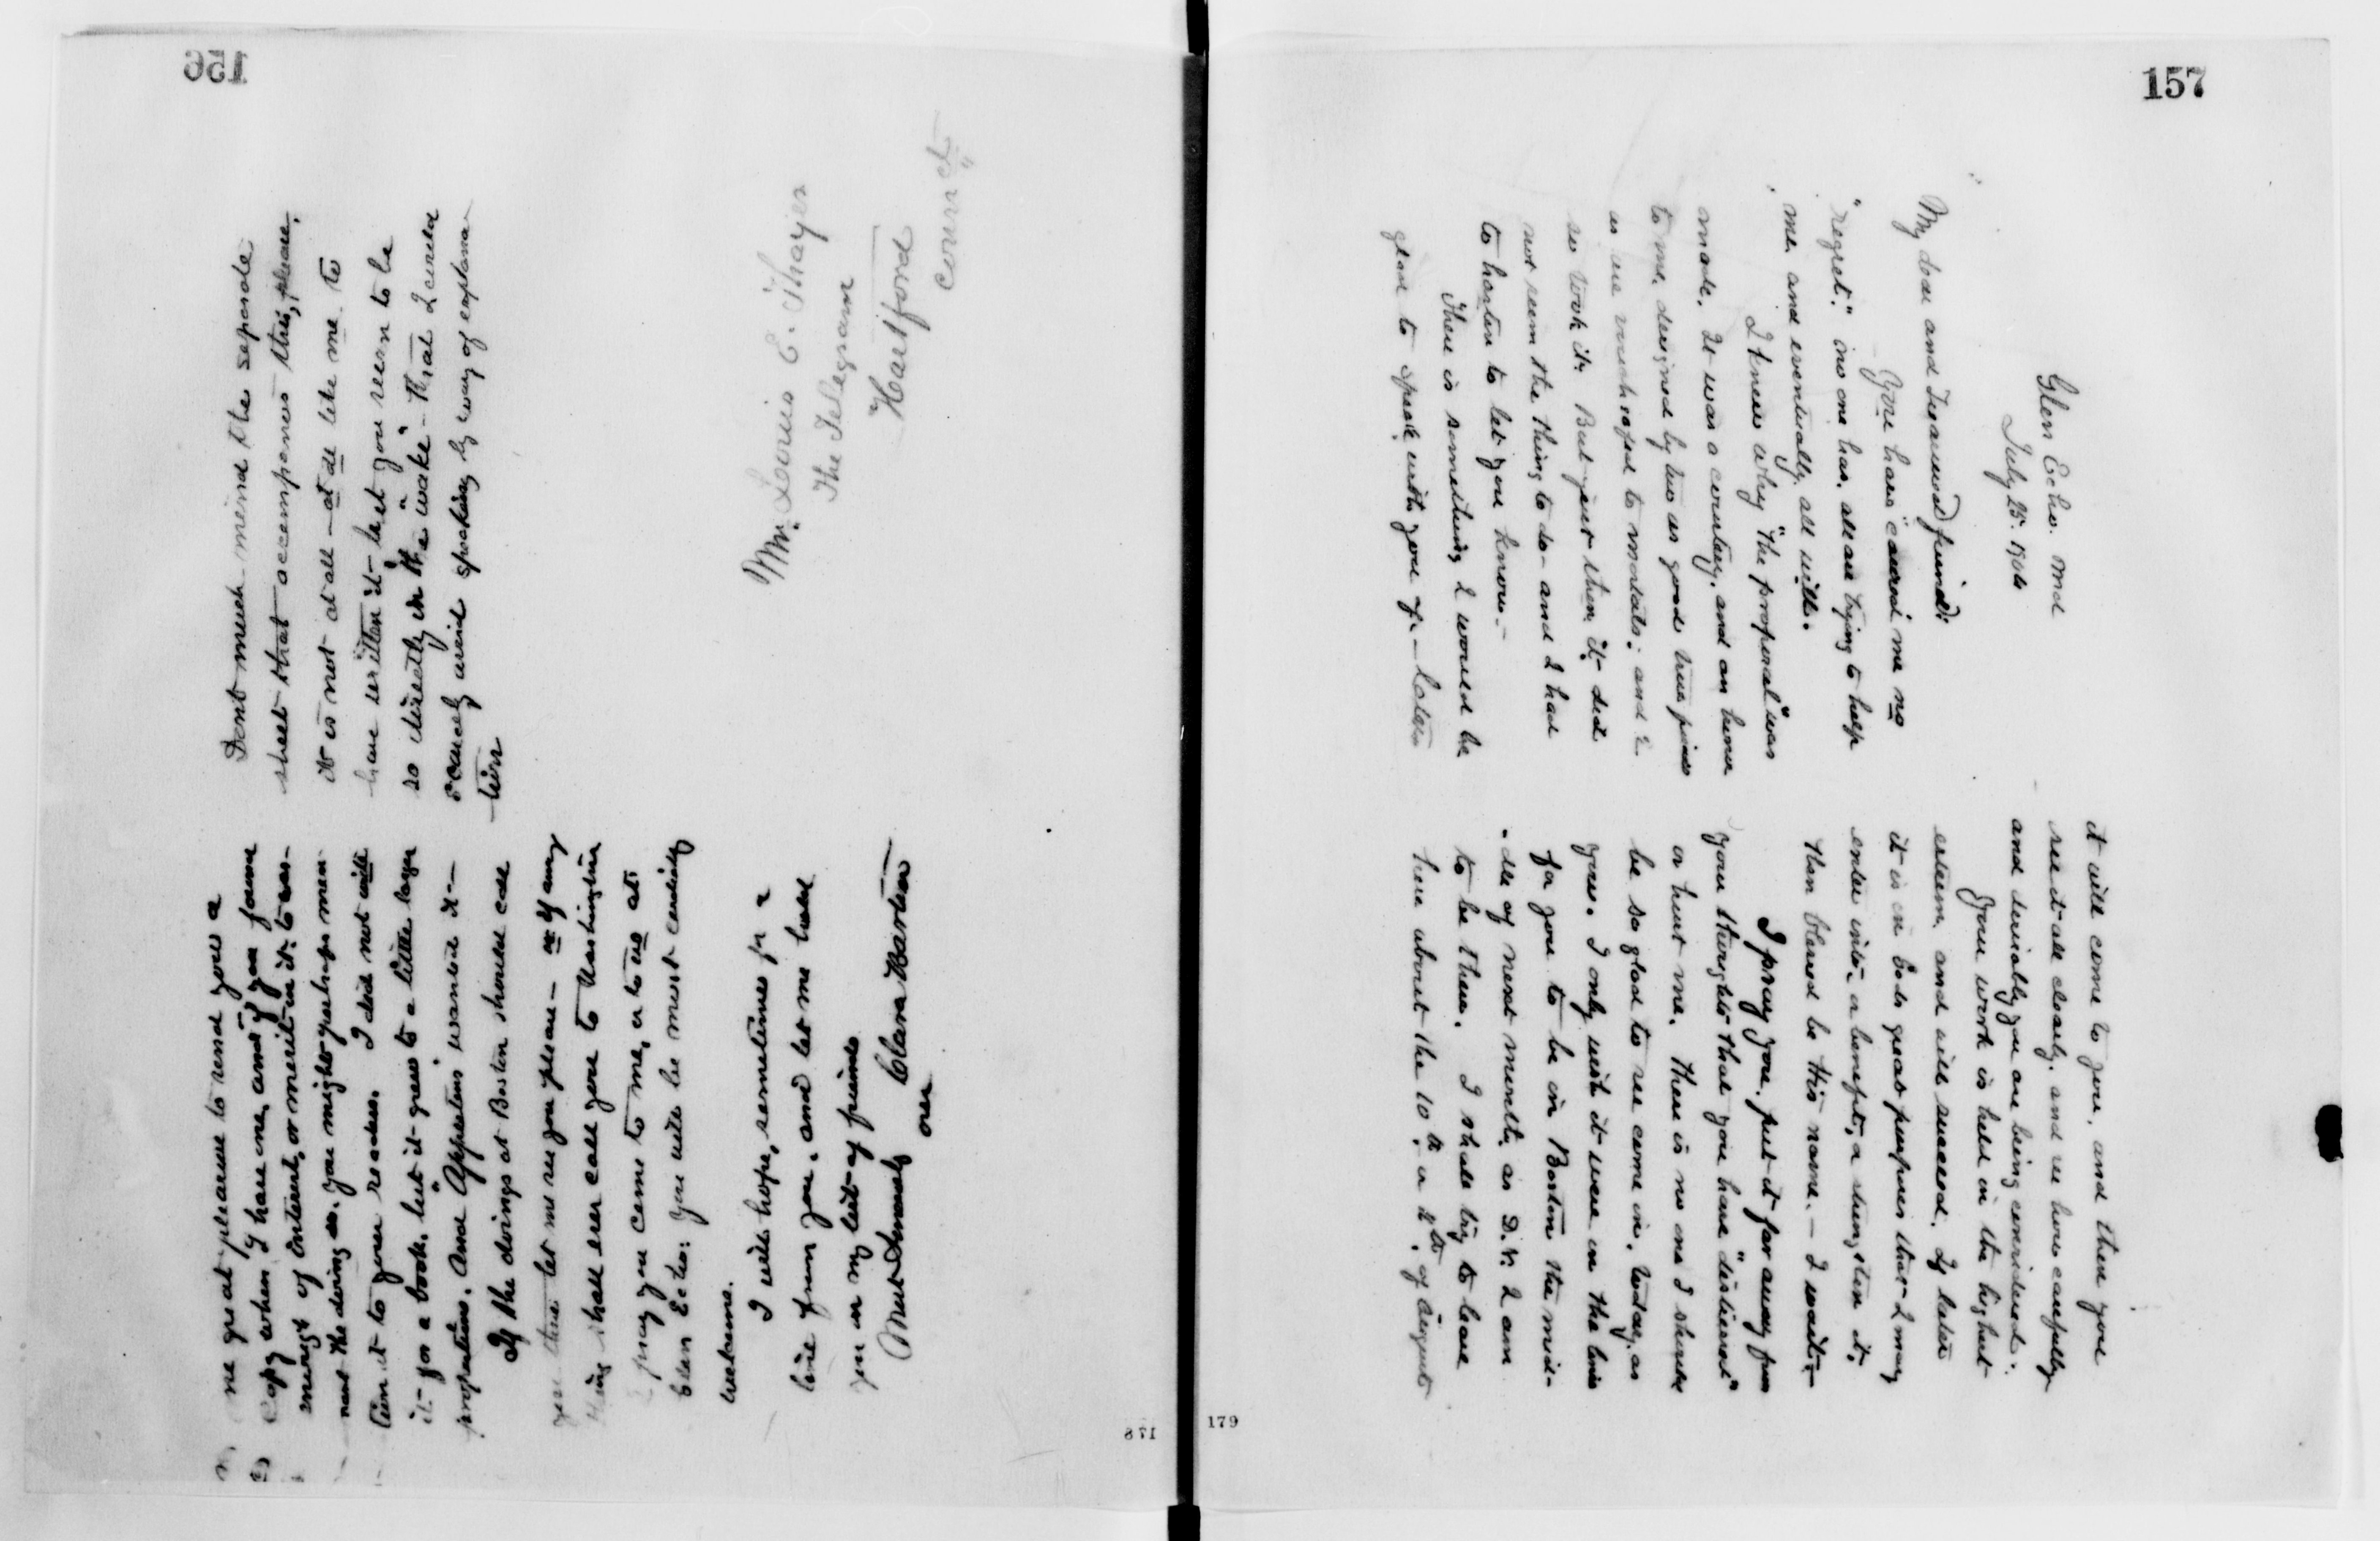 156
me great pleasure to send you a
copy when I have one, and if you found
enough of interest, or merit in it to war-
rant the doing so, you might perhaps men-
tion it to your readers. I did not call
it for a book, but it grew to a little larger
proportions. And "Appletons" wanted it—
If the doings at Boston should call
you there let me see you please — or if any
thing shall ever call you to Washington
I pray you come to me, or to us at
Glen Echo: you will be most cordially
welcome.
I will hope, sometimes for a
line from you, and let me hold
you in my list of friends
Most Sincerely Clara Barton
over
Dont much mind the separate
sheet that accompanies this, please.
it is not at all — at all like me to
have written it — but you seem to be
so directly in the "wake" — that I could
scarcely avoid speaking by way of explana-
tion
Mr. Louis E. Thayer
The Telegram
Hartford
Connct
178
157
Glen Echo. Md
July 25. 1904
My dear and Treasured friend:
You have "caused" me no
"regret." no one has. all are trying to help
me and eventually all will.
I knew why "the proposal" was
made. It was a courtesy, and an honor
to me, designed by two as good true friends
as are vouchsafed to mortals: and I
so took it. But just then it did
not seem the thing to do — and I had
to hasten to let you know. —
There is something I would be
glad to speak with you of — later
it will come to you, and then you
see it all clearly, and see how carefully
and desirably you are being considered:
Your work is held in the highest
esteem, and will succeed. If later
it is in Gods great purposes that I may
enter into a benefit, a strengthen it,
then blessed be His name. — I wait —
I pray you, put it far away from
your thoughts that you have "distressed"
or hurt me. There is no one I should
be so glad to see come in, today, as
you. I only wish it were on the line
for you to be in Boston the mid-
dle of next month, as D.V. I am
to be there. I shall try to leave
here about the 10th or 12th, of August
179